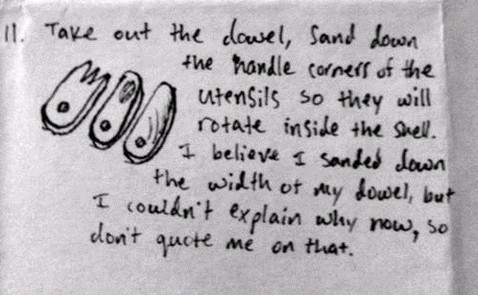 11. Take out the dowel, Sand down
the handle corners of the
utensils so they will
rotate inside the shell.
I believe I sanded down
the width of my dowel, but
I couldn't explain why now, so
don't quote me on that.